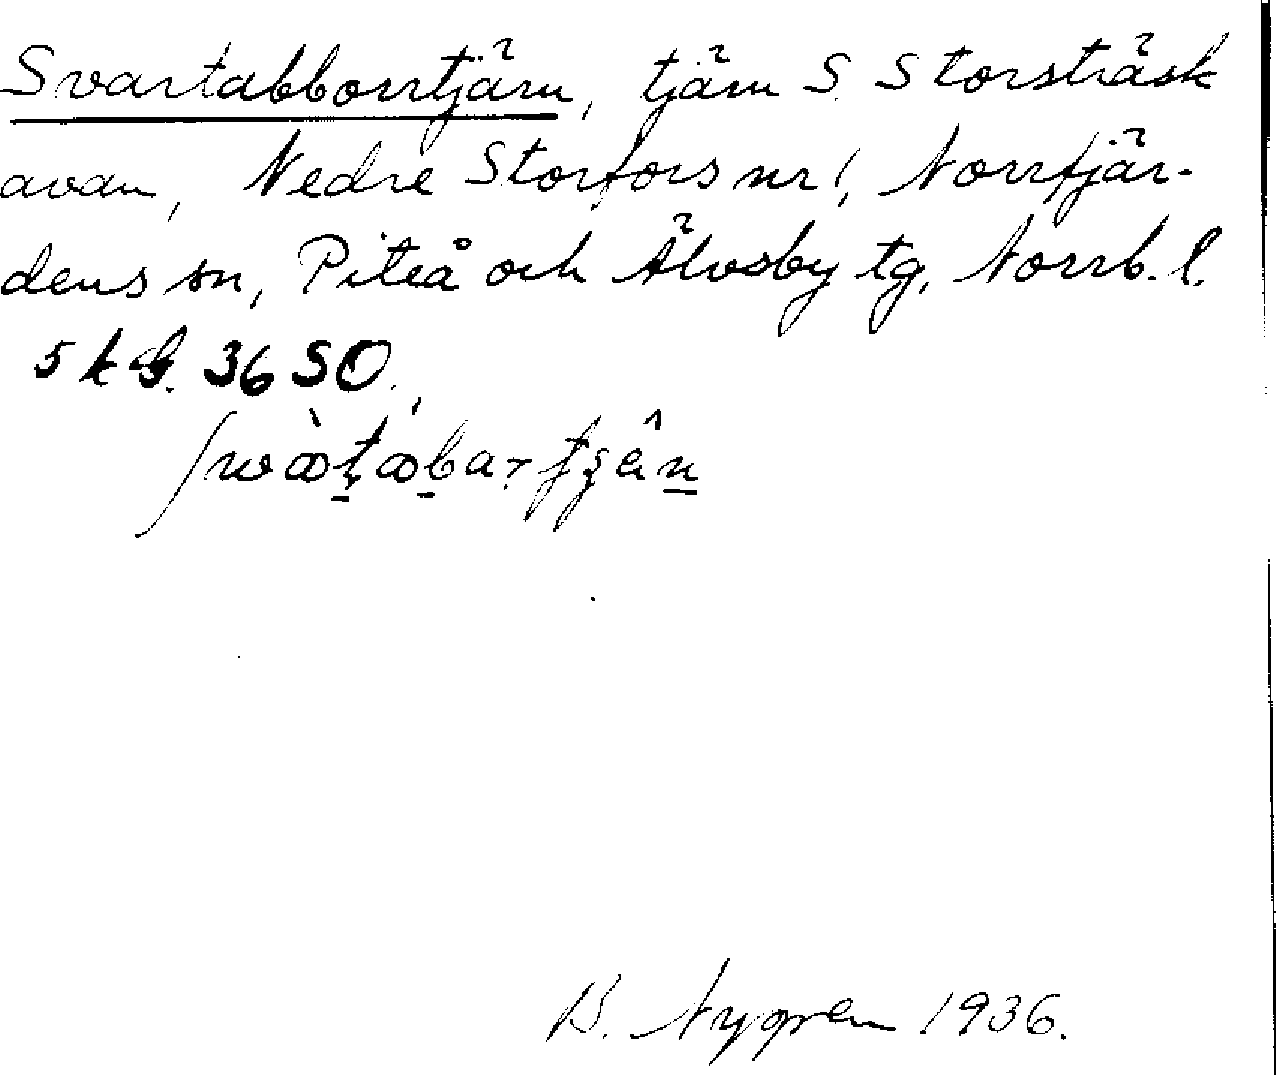 Svartabborrtjärn, tjärn S. Storsträsk
avan, Nedre Storfors nr 1, Norrfjär-
dens sn, Piteå och Älvsby tg, Norrb. l.
3650.
B. Nygren 1936.